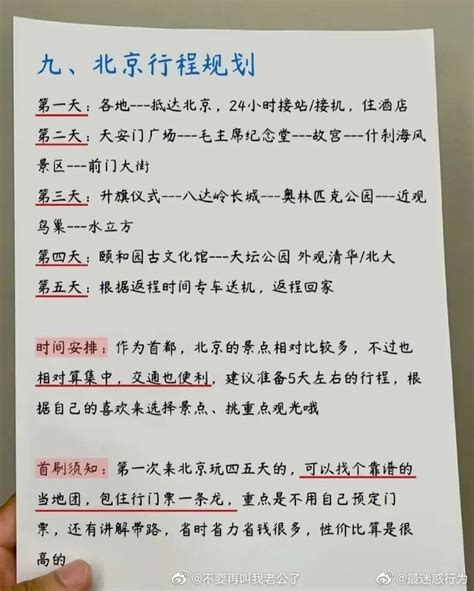 九、北京行程规划
第一天：各地---抵达北京，24小时接站/接机，住酒店
第二天：天安门广场---毛主席纪念堂---故宫---什刹海风
景区---前门大街
第三天：升旗仪式---八达岭长城---奥林匹克公园---近观
鸟巢---水立方
第四天：颐和园古文化馆---天坛公园 外观清华/北大
第五天：根据返程时间专车送机，返程回家
时间安排：作为首都，北京的景点相对比较多，不过也
相对算集中，交通也便利，建议准备5天左右的行程，根
据自己的喜欢来选择景点、挑重点观光哦
首刷须知：第一次来北京玩四五天的，可以找个靠谱的
当地团，包住行门票一条龙，重点是不用自己预定门
票，还有讲解带路，省时省力省钱很多，性价比算是很
高的
@不要再叫我老公了
@最迷惑行为